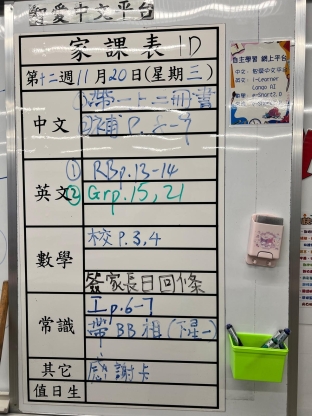 智愛中文平台
家課表 1D
第十二週 11月20日(星期三)
中文
①帶一上二冊書
②補 P.8-9
英文
① RBp.13-14
② Grp.15,21
數學
校 P.3,4
簽家長日回條
常識
工p.6-7
帶BB相(下星一)
其它
感謝卡
值日生
自主學習 網上平台
中文：智愛中文平台
英文：i-Learner